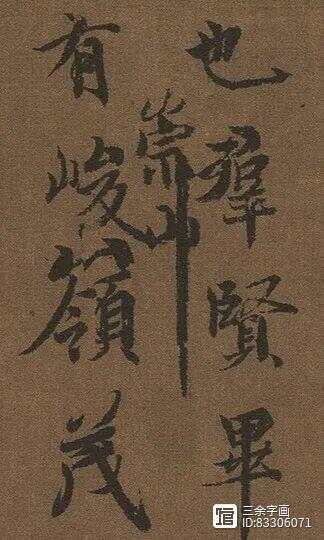 也羣賢畢
崇山
有峻嶺茂
三余字画
ID:83306071